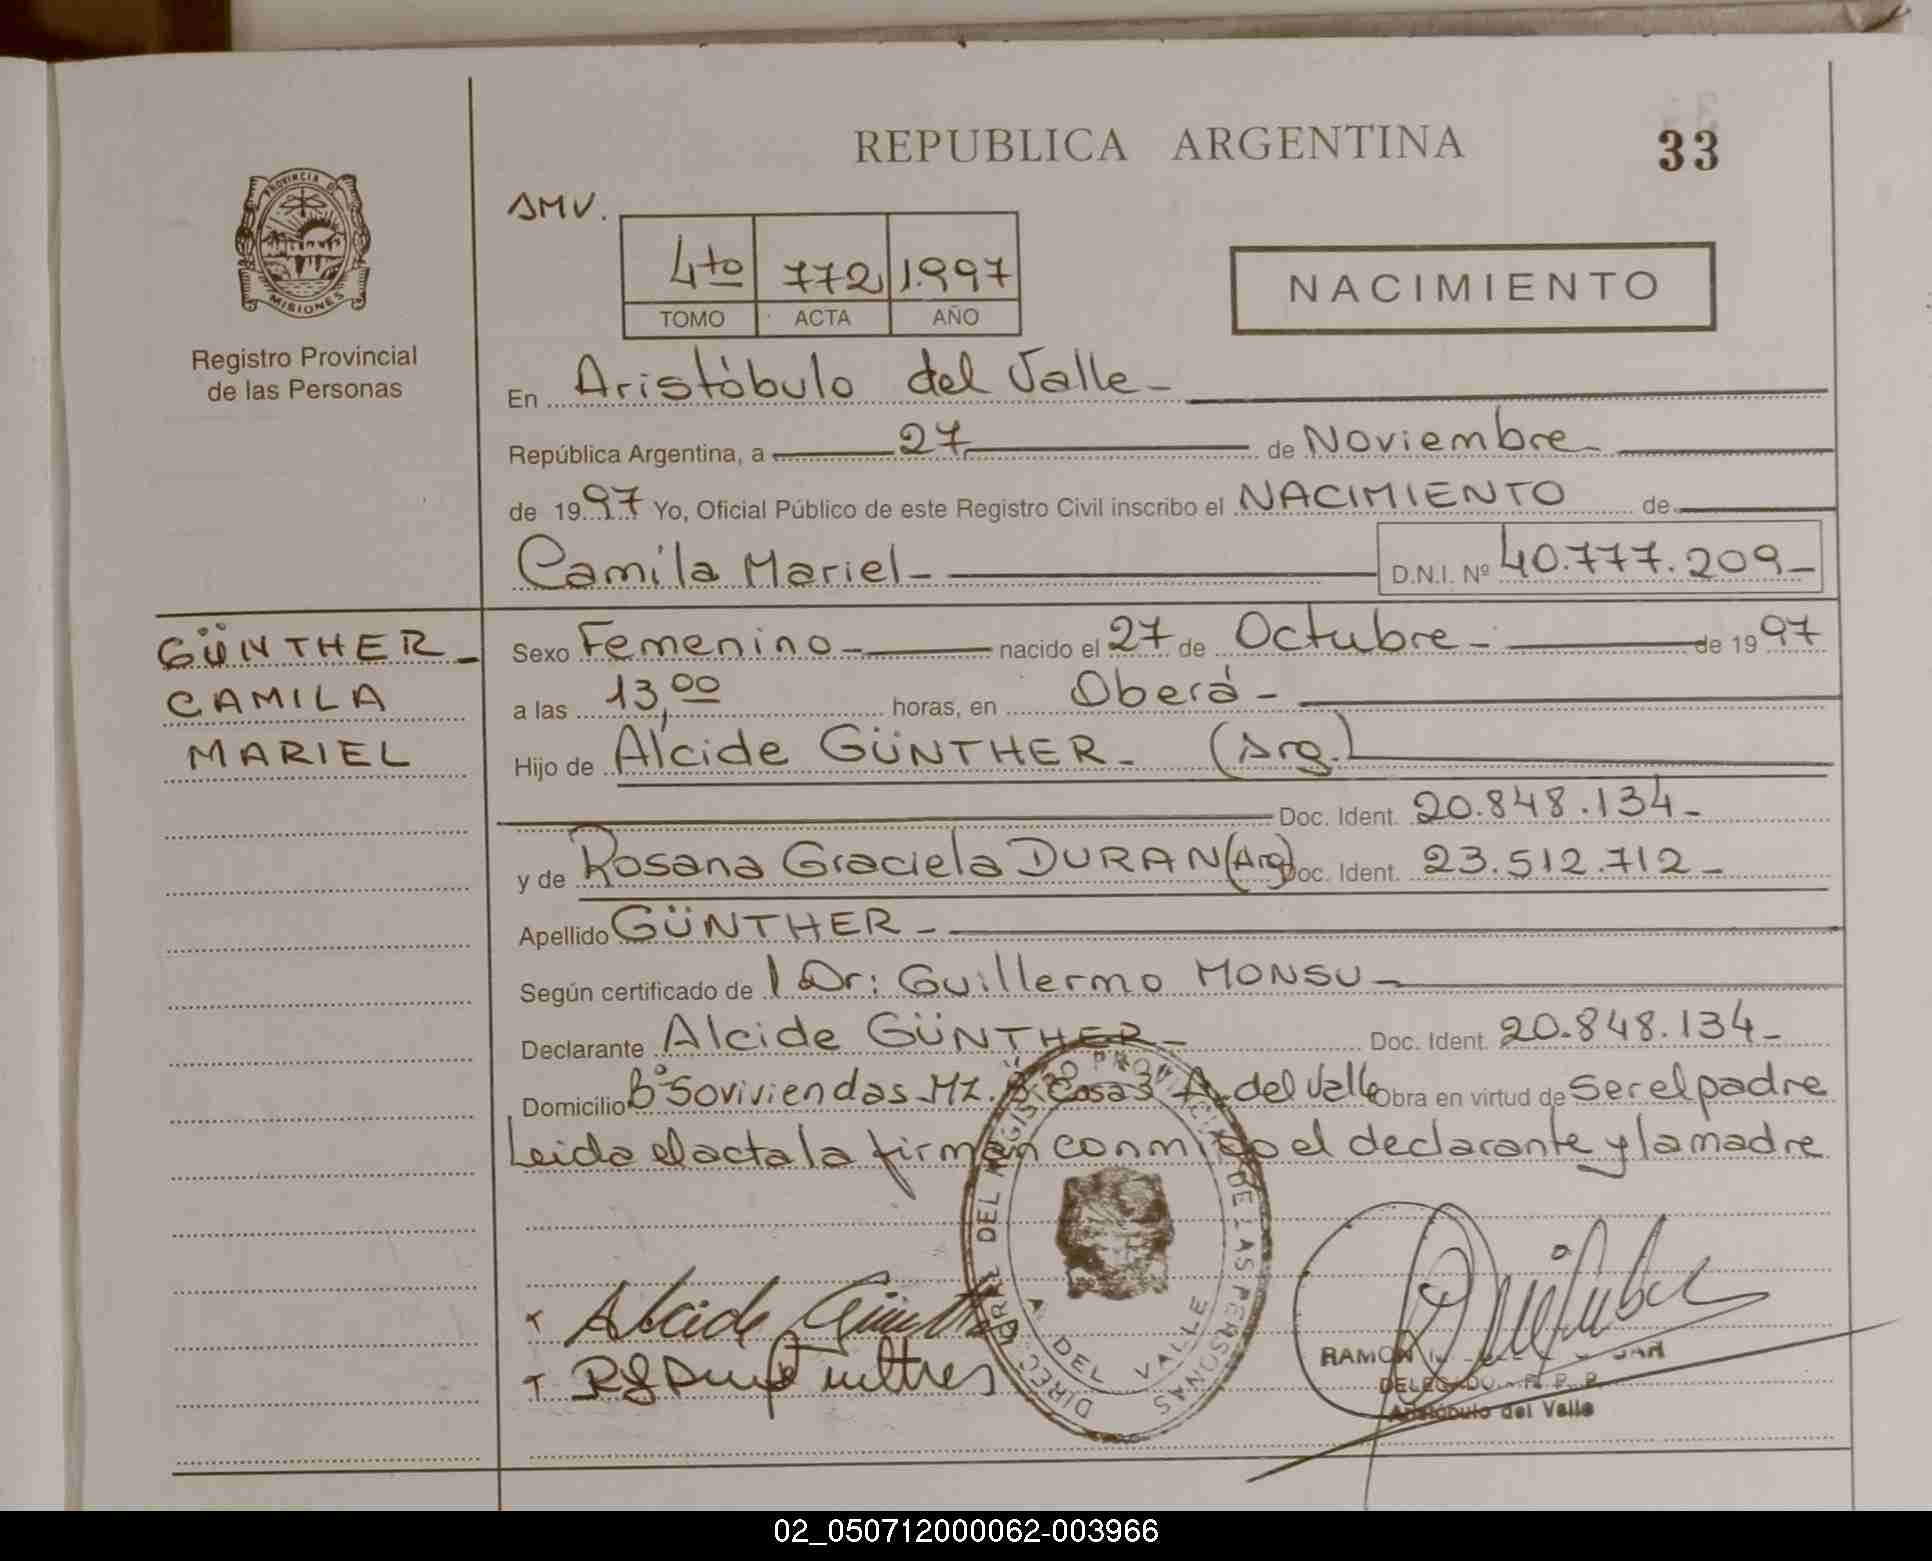 REPUBLICA ARGENTINA
33
PROVINCIA DE
MISIONES
Registro Provincial
de las Personas
SMV.
4to 772 1.997
TOMO ACTA AÑO
NACIMIENTO
En Aristóbulo del Valle-
República Argentina, a 27 de Noviembre-
de 1997 Yo, Oficial Público de este Registro Civil inscribo el NACIMIENTO de
Camila Mariel- D.N.I. Nº 40.777.209-
GÜNTHER-
CAMILA
MARIEL
Sexo Femenino- nacido el 27 de Octubre- de 1997
a las 13,00 horas, en Oberá-
Hijo de Alcide GÜNTHER- (Arg.)
Doc. Ident. 20.848.134-
y de Rosana Graciela DURAN (Arg) Doc. Ident. 23.512.712-
Apellido GÜNTHER-
Según certificado de l Dr: Guillermo MONSU-
Declarante Alcide GÜNTHER- Doc. Ident. 20.848.134-
Domicilio Bº 50 viviendas Mz. Casa 3 A. del Valle Obra en virtud de ser el padre
Leida el acta la firman conmigo el declarante y la madre
DIREC. GRAL. DEL REGISTRO PROVINCIAL DE LAS PERSONAS
A. DEL VALLE
Alcide Günther
RAMON
DELEGADO R. P. P.
Aristóbulo del Valle
02_050712000062-003966